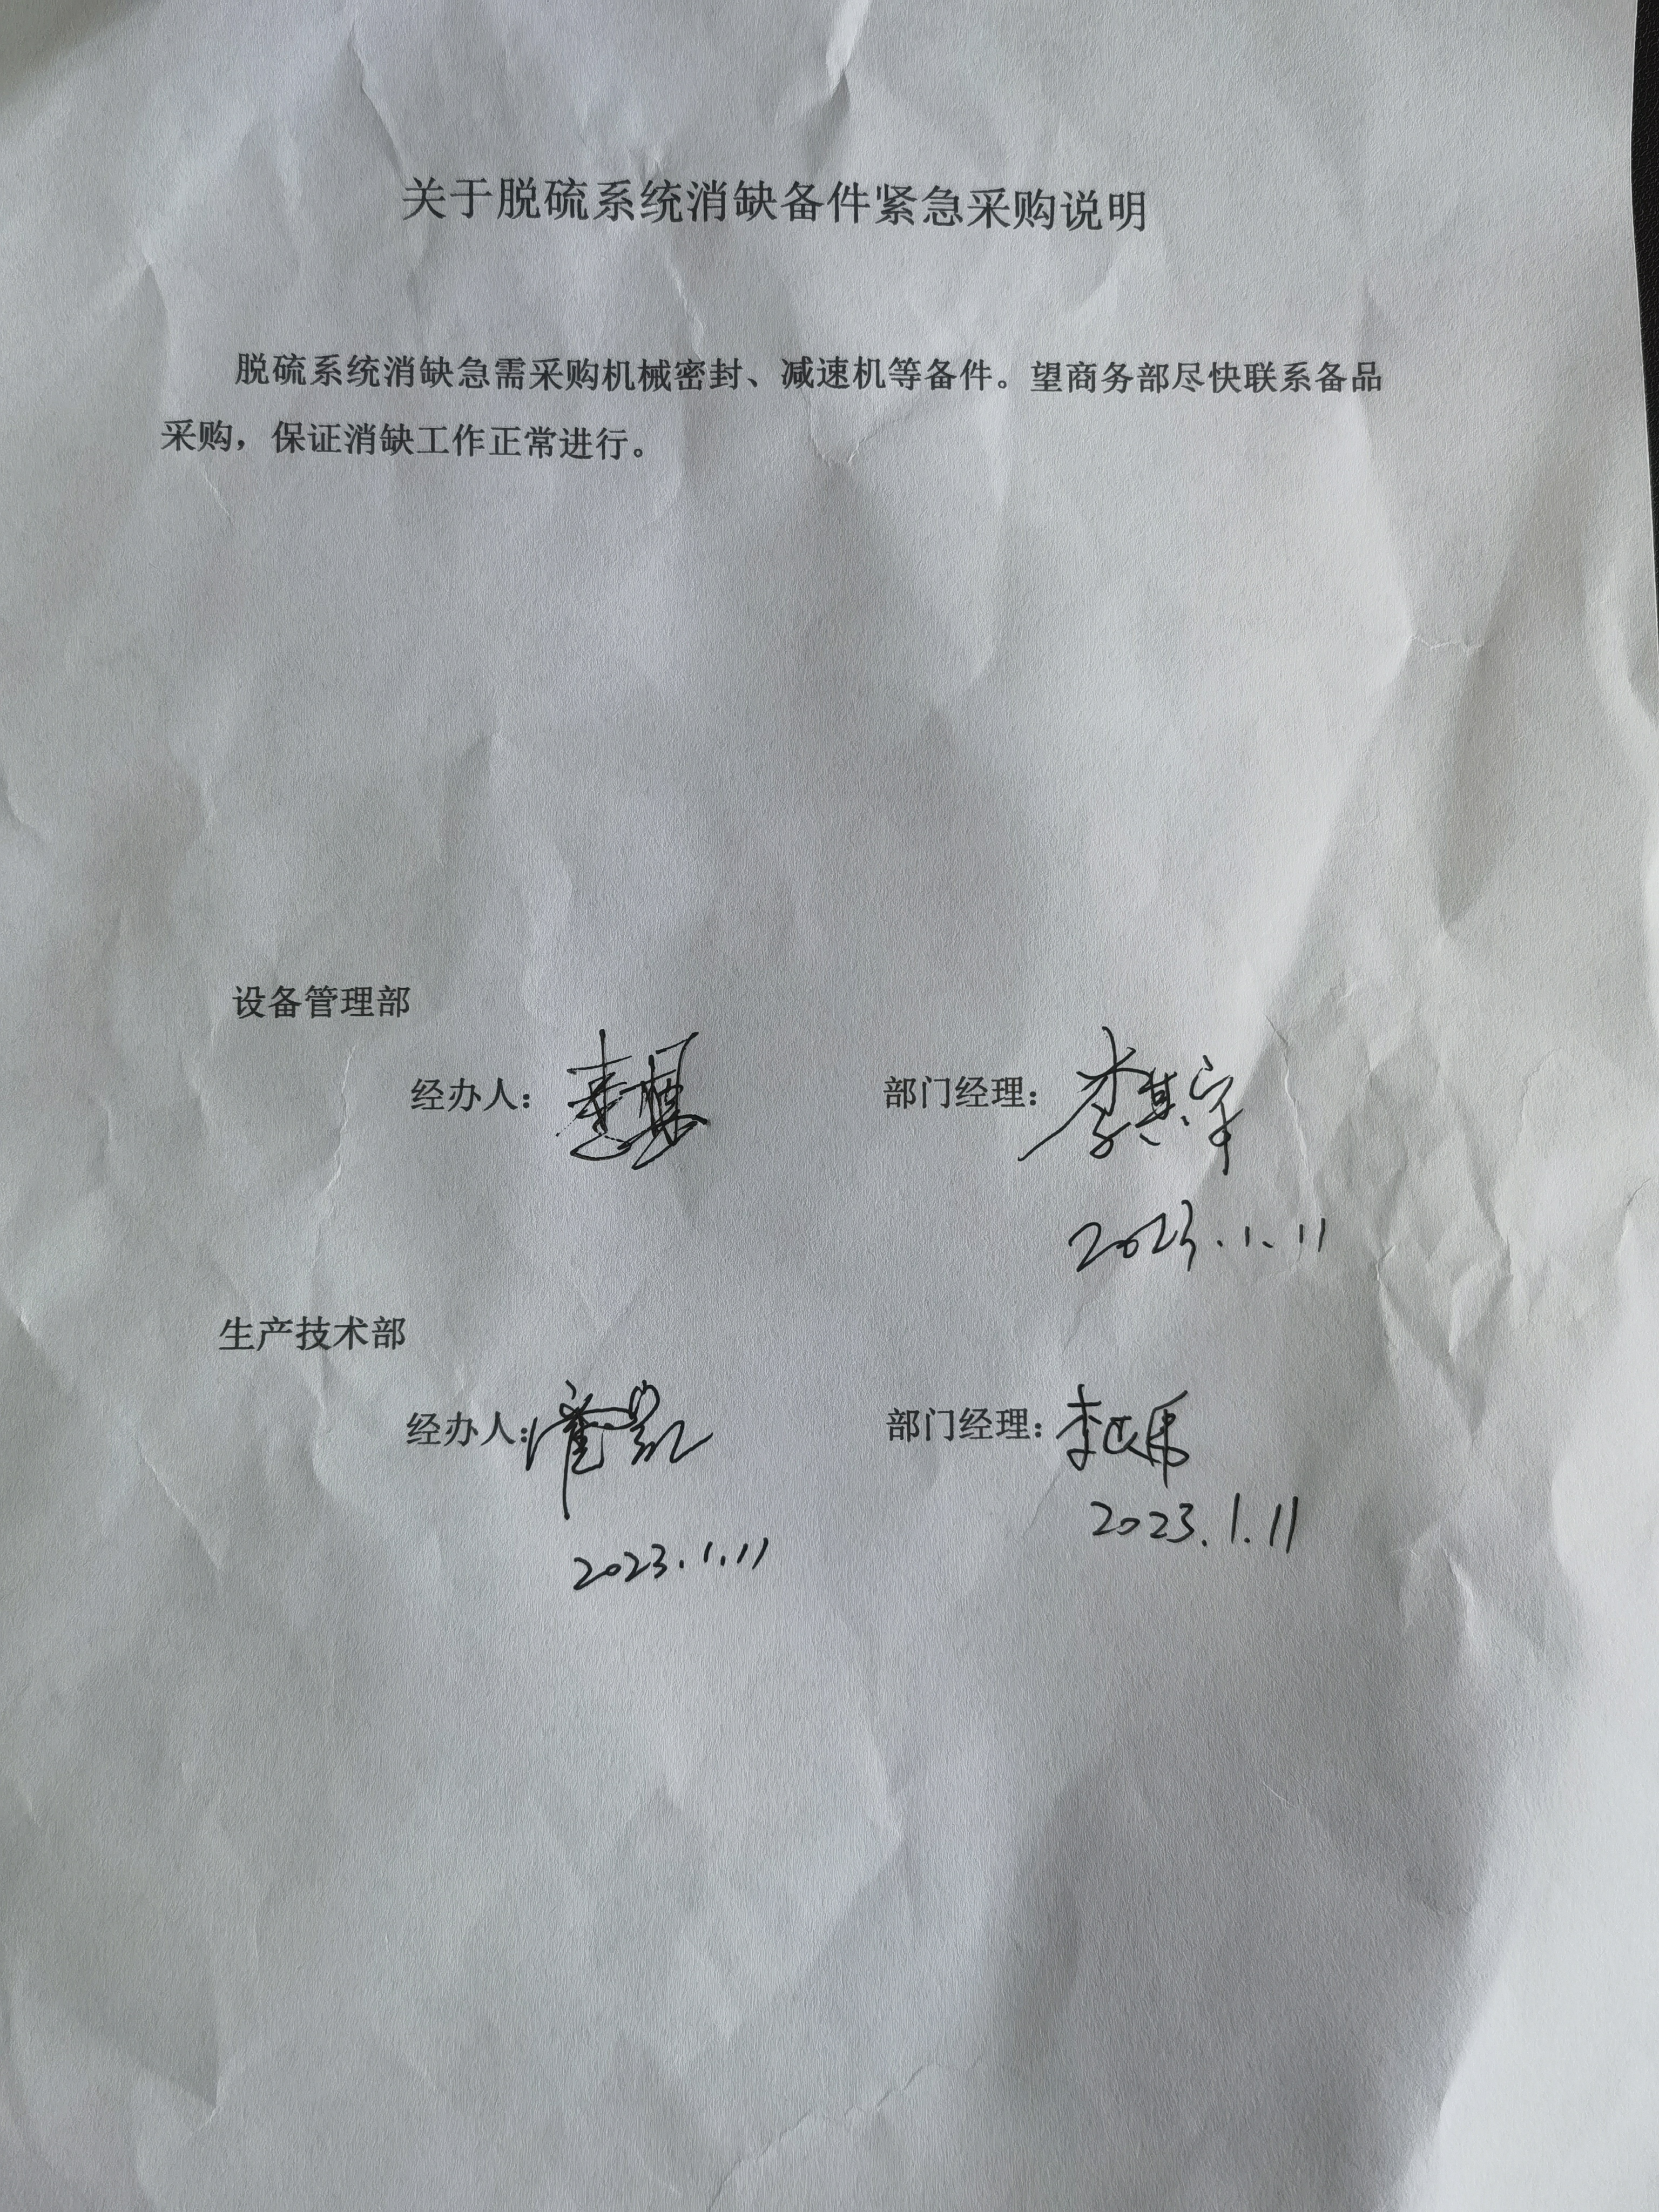 关于脱硫系统消缺备件紧急采购说明
脱硫系统消缺急需采购机械密封、减速机等备件。望商务部尽快联系备品
采购，保证消缺工作正常进行。
设备管理部
经办人： 部门经理：李其宇
2023.1.11
生产技术部
经办人： 部门经理：
2023.1.11
2023.1.11